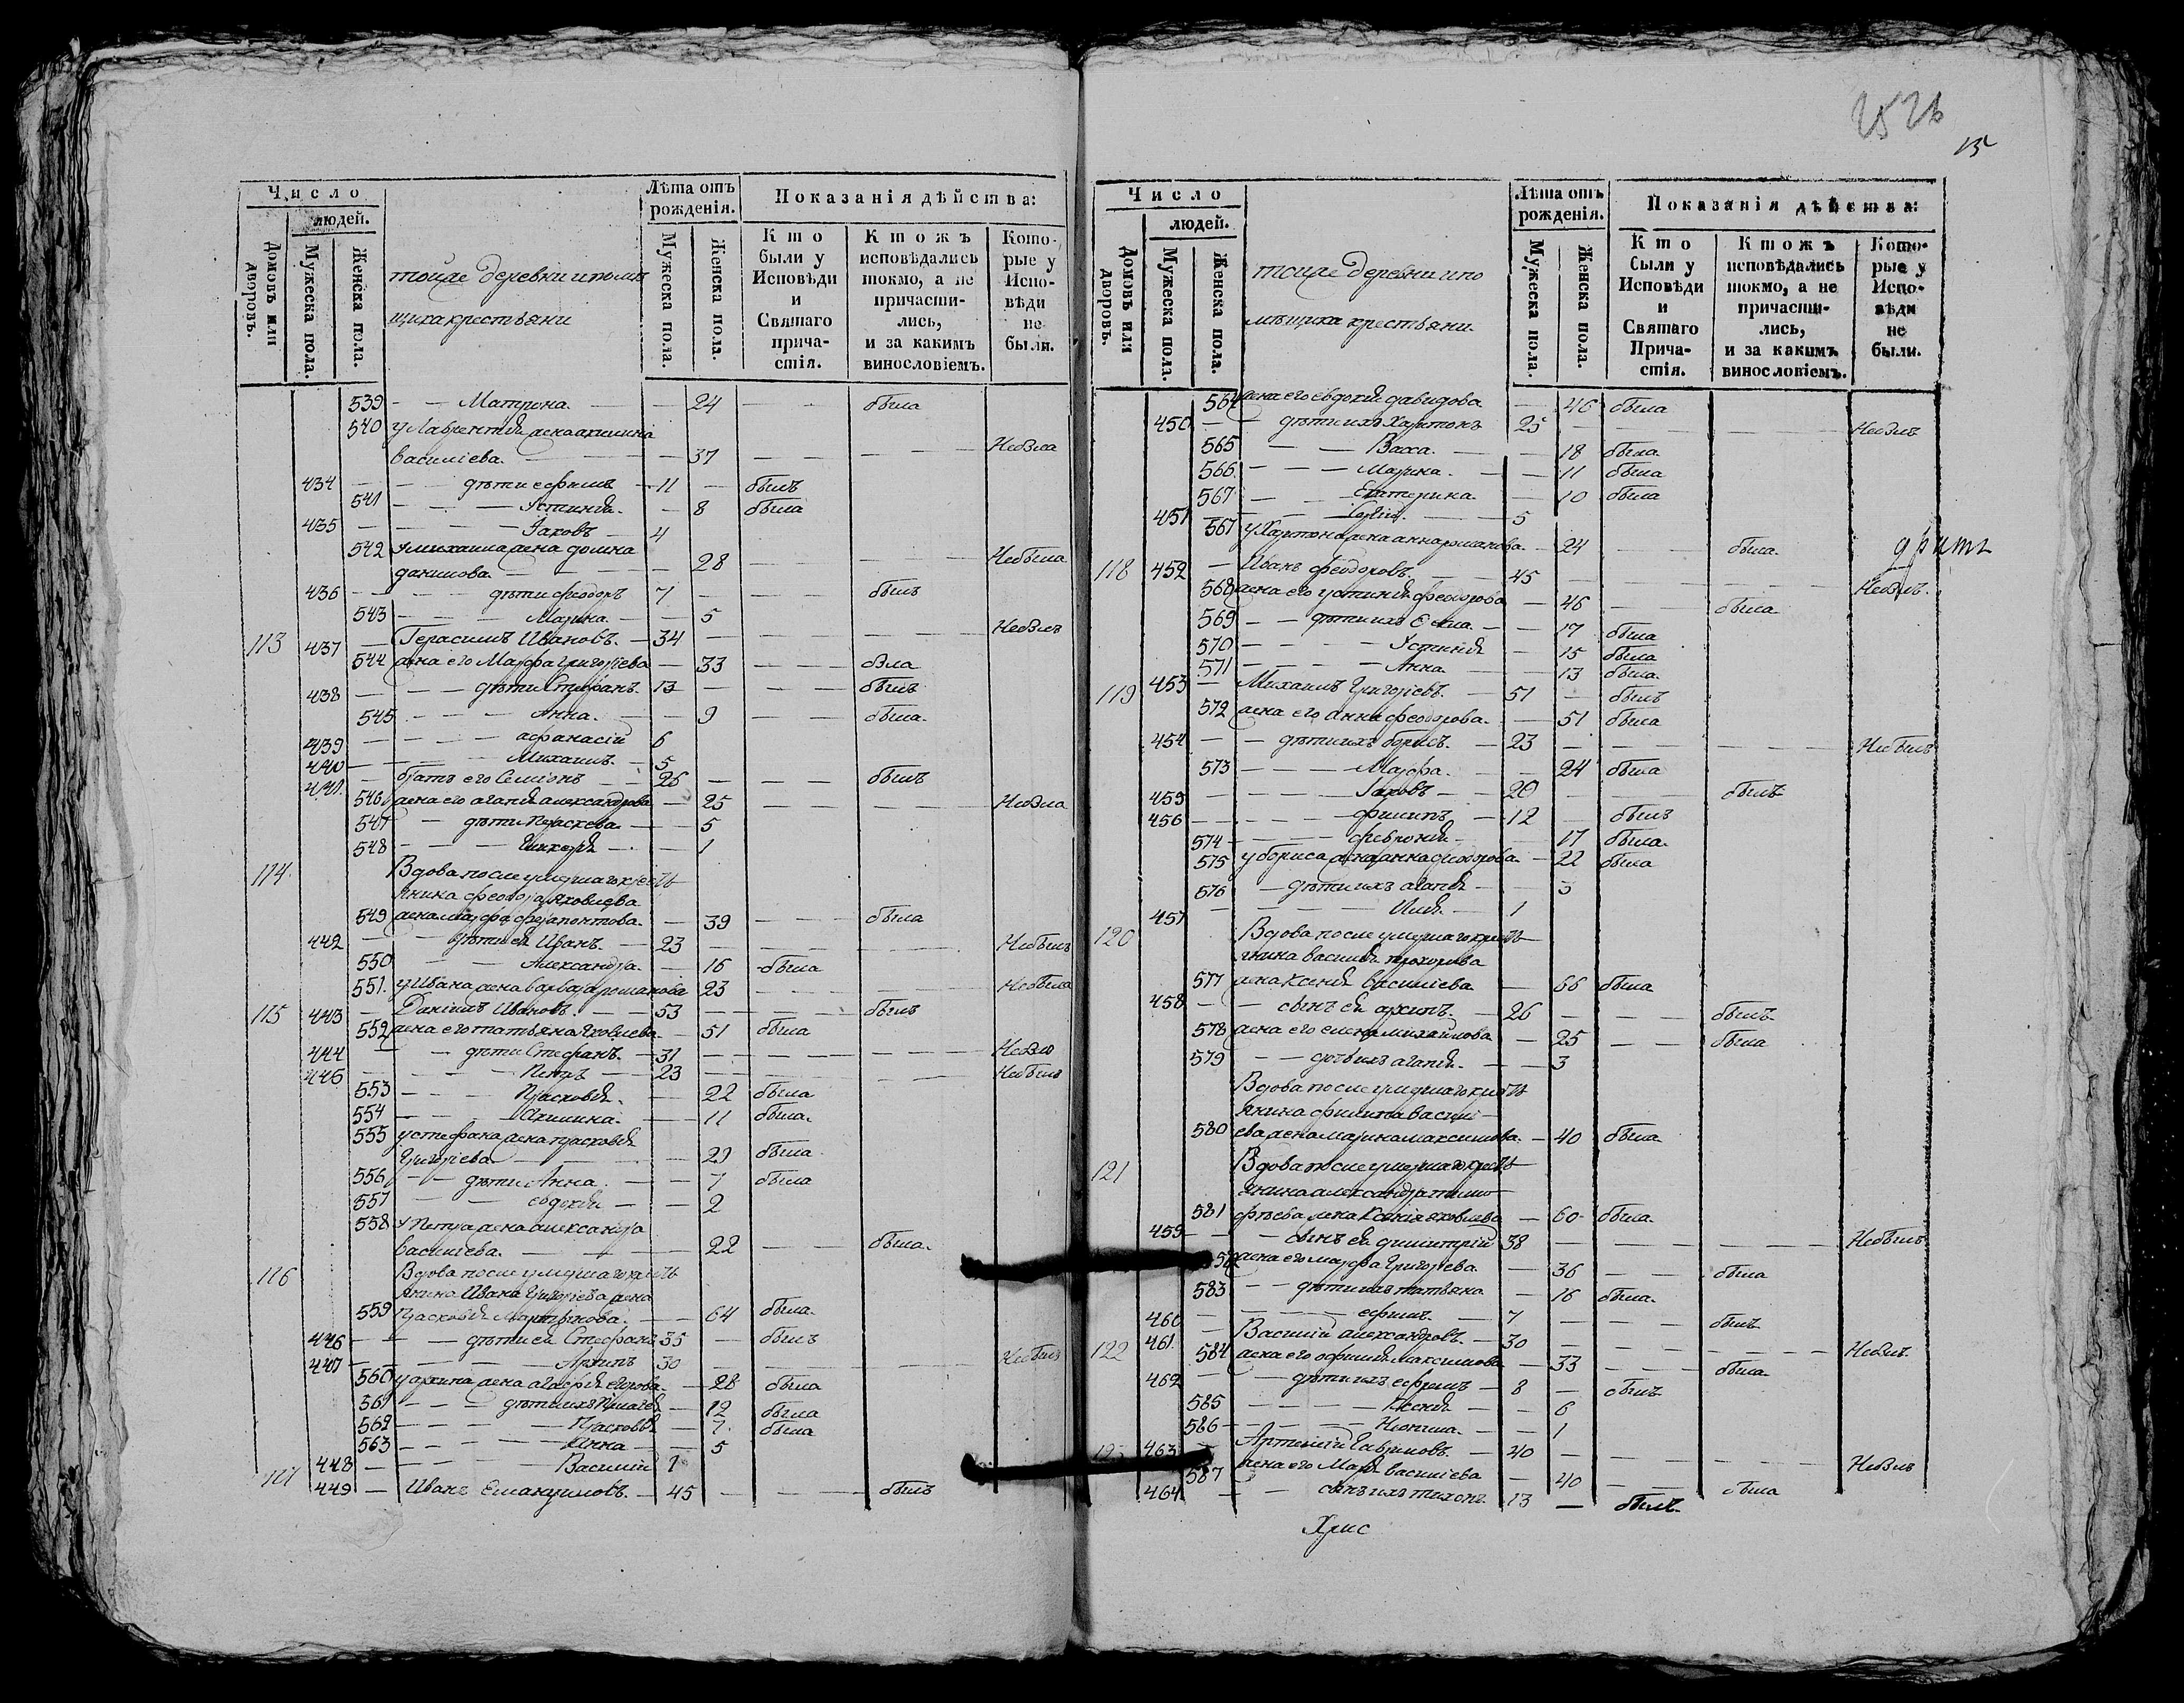 Число
людей.
Домовъ или дворовъ.
Мужеска пола.
Женска пола.
тойже деревни и помѣ
щика крестьяни
Лѣта отъ рожденія.
Мужеска пола.
Женска пола.
Показанія дѣйства:
Кто были у Исповѣди и Святаго причастія.
Ктожъ исповѣдались токмо, а не причастились, и за какимъ винословіемъ.
Которые у Исповѣди не были.
539 — — Матрона. — 24 — — была
540 у Лаврентія жена акилина
василіева. — 37 — — — — Небыла
434 — — дѣти ефимъ — 11 — былъ
541 — — — Устинія. — 8 была
435 — — — Іаковъ — 4
542 у михаила жена домна
данилова. — 28 — — — Небыла
436 — — — дѣти феодоръ 7 — — — былъ
543 — — — Марина — — 5
113 437 — Герасимъ Ивановъ. — 34 — — — — Небылъ
544 жена его Марфа григоріева — 33 — — была
438 — — — дѣти Стефанъ. 13 — — — былъ
545 — — — Анна. — — 9 — — была.
439 — — — афанасій 6
440 — — — Михаилъ. — 5
441. — братъ его Семіонъ — 26 — — — былъ
546 жена его агапія александрова — 25 — — — — Небыла
547 — дѣти Параскева. — — 5
548 — — — Гликерія — — 1
114. Вдова после умершаго кресть
янина феодора яковлева
549 жена марфа ферапонтова. — 39 — — была
442 — — дѣти ея Иванъ. — 23 — — — — Небылъ
550 — — Александра. — 16 была
551. у Ивана жена варвара романова 23 — — — — Небыла
115 443 — Даніилъ Ивановъ. — 53 — — — былъ
552 жена его татьяна Яковлева — 51 была
444 — — дѣти Стефанъ. — 31 — — — — Небылъ
445 — — — Петръ — 23 — — — — Небылъ
553 — — — Прасковія. — 22 была
554 — — — Акилина. — 11 была.
555 у стефана жена прасковія
Григоріева — — 29 была
556 — — дѣти Анна. — — 7 была
557 — — евдокія — — 2
558 у Петра жена александра
василіева. — — 22 — — была.
116 Вдова после умершаго кресть
янина Ивана Григоріева жена
559 Прасковія Мартынова. — — 64 была.
446 — — — дѣти ея Стефанъ 35 — былъ
447 — — — Архипъ 30 — — — — Небылъ
560 у архипа жена агафія егорова. — 28 была
561 — — дѣти ихъ — 12 была
562 — — — Прасковья — 7. была
563 — — — Анна — — 5
448 — — — Василій 1
117 449 — Иванъ Емануиловъ. — 45 — — — былъ
2526
15
Число
людей.
Домовъ или дворовъ.
Мужеска пола.
Женска пола.
тойже деревни и по
мѣщика крестьяни
Лѣта отъ рожденія.
Мужеска пола.
Женска пола.
Показанія дѣйства:
Кто были у Исповѣди и Святаго Причастія.
Ктожъ исповѣдались токмо, а не причастились, и за какимъ винословіемъ.
Которые у Исповѣди не были.
564 жена его евдокія давидова — 46 была
450 — — дѣти ихъ Харитонъ 25 — — — — Небылъ
565 — — — Васса. — — 18 была.
566 — — — Марина. — — 11 была
567 — — — Екатерина. — 10 была
451 — — — — 5
567 у Харитона жена анна романова — 24 — — была.
118 452 — Иванъ феодоровъ. — 45 — — — — Небылъ.
568 жена его устинія феодорова — 46 — — была
569 — — дѣти ихъ — — 17 была
570 — — — Устинія — 15 была
571 — — — Анна — — 13 была.
119 453 — Михаилъ Григоріевъ. — 51 — былъ
572 жена его Анна феодорова. — 51 была
454 — — дѣти ихъ борисъ. — 23 — — — — Небылъ
573 — — — Марфа. — — 24 была
455 — — — Іаковъ — 20 — — — былъ
456 — — — филипъ — 12 — былъ
574 — — — февронія — — 17 была.
575 у бориса жена анна феодорова — 22 была
576 — дѣти ихъ агапія — — 3
457 — — — Илія. — 1
120 Вдова после умершаго кресть
янина василія прохорова
577 жена Ксенія василіева — 66 была
458 — — сынъ ея архипъ. — 26 — — — былъ
578 жена его елена михаилова — 25 — — была
579 — — дочь ихъ агапія. — — 3
Вдова после умершаго кресть
янина филипа васили
580 ева жена марина максимова. — 40 была
121 Вдова после умершаго кресть
янина александра тимо
581 фѣева жена Ксенія яковлева — 60 была.
459 — — сынъ ея димитрій 38 — — — — Небылъ
жена его марфа Григорьева — 36 — — была
583 — — дѣти ихъ татьяна — 16 была.
460 — — — ефимъ. — 7 — — — былъ
122 461. — Василій александровъ. — 30 — — — — Небылъ
584 жена его Максимова — 33 — — была.
462 — — дѣти ихъ ефимъ — 8 — былъ
585 — — — Ксенія — — 6
586 — — — — — 1
463 — Артемій Гавриловъ. — 40 — — — — Небылъ
587 жена его Марія василіева — 40 — — была
464 — — сынъ ихъ тихонъ. 13 — былъ.
Хрис